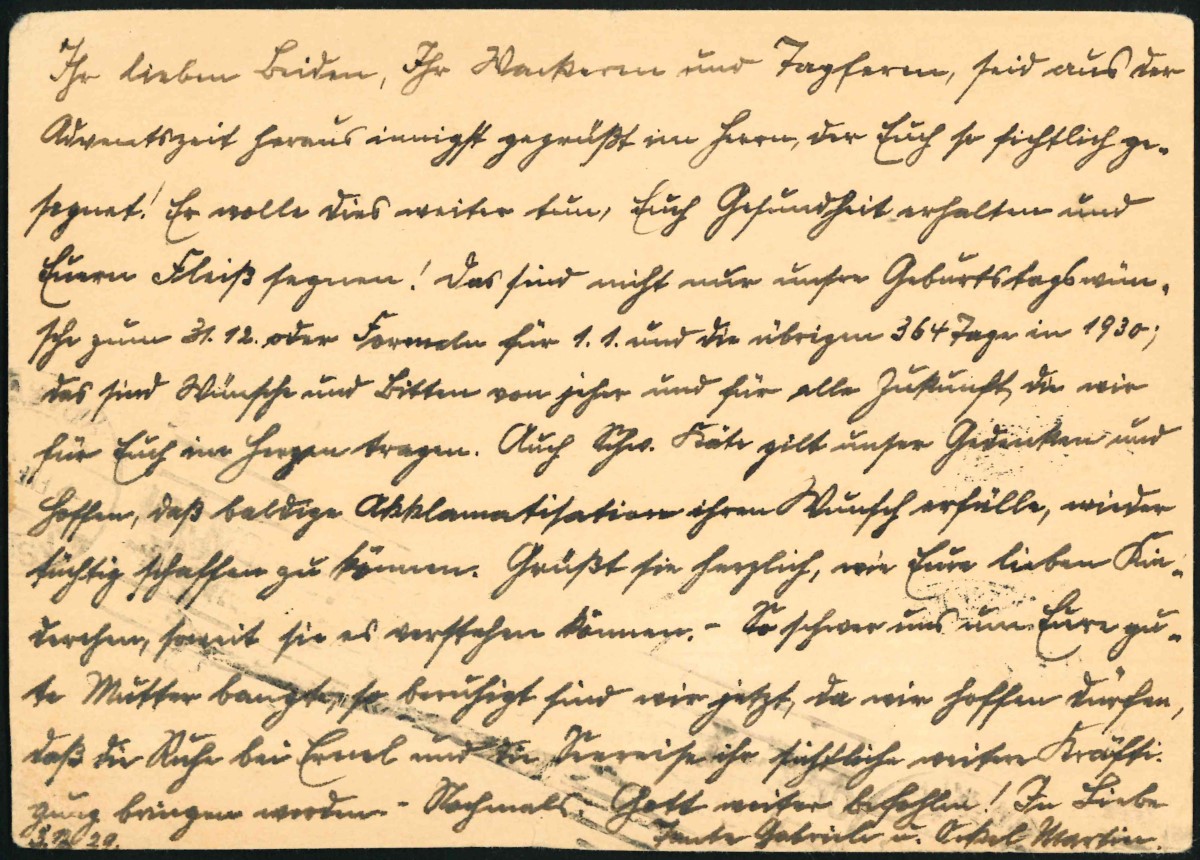 Ihr lieben Beiden, Ihr Wackeren und Tapferen, seid aus der
Adventszeit heraus innigst gegrüßt im Herrn, der Euch so sichtlich ge-
segnet! Er wolle dies weiter tun, Euch Gesundheit erhalten und
Euern Fleiß segnen! Das sind nicht nur unsre Geburtstagswün-
sche zum 31. 12. oder Formeln für 1. 1. und die übrigen 364 Tage in 1930;
das sind Wünsche und Bitten von jeher und für alle Zukunft, die wir
für Euch im Herzen tragen. Auch Schw. Käte gilt unser Gedenken und
Hoffen, daß baldige Akklamatisation ihren Wunsch erfülle, wieder
tüchtig schaffen zu können. Grüßt sie herzlich, wie Eure lieben Kin-
derchen, soweit sie es verstehen können. - So schwer uns um Eure gu-
te Mutter bangte, so beruhigt sind wir jetzt, da wir hoffen dürfen,
daß die Ruhe bei Ernel und die Seereise ihr sichtliche weitere Kräfti-
gung bringen werden - Nochmals: Gott weiter befohlen! In Liebe
5.12.29. Tante Gabriele u. Onkel Martin.